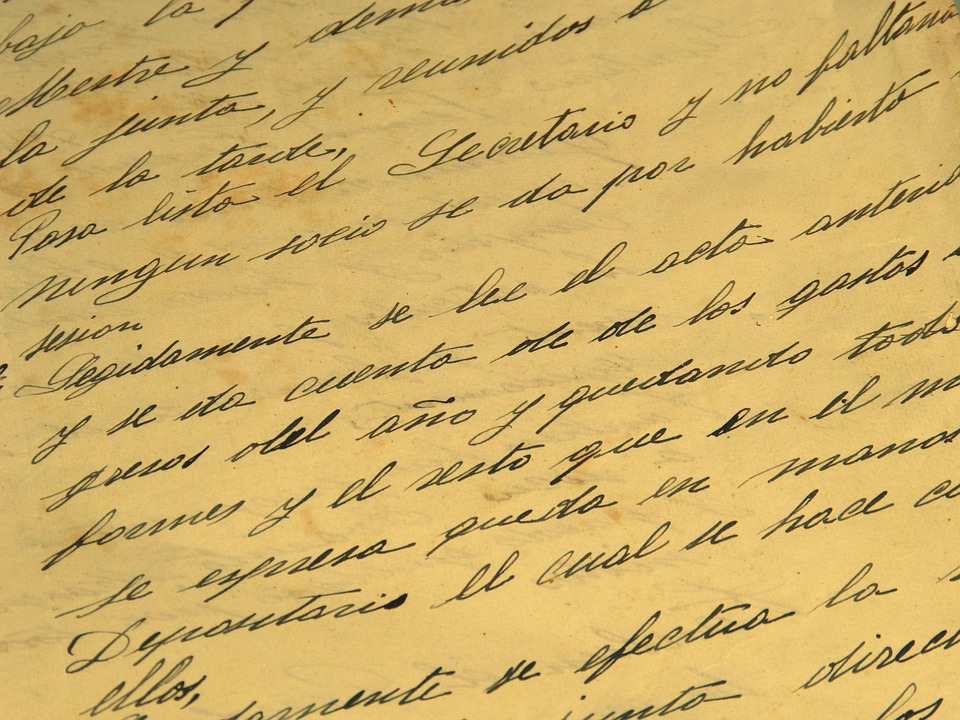 bajo la
Mestre y demas
la junta, y reunidos a
de la tarde,
Pasa lista el Secretario y no faltana
ningun socio se da por habierto
sesion
Segidamente se lee el acta anterio
y se da cuenta de de los gastos
gresos del año y quedando todo
formes y el resto que en el m
se expresa queda en manos
Depositario el cual se hace ca
ellos,
damente se efectua la
junta direct
los